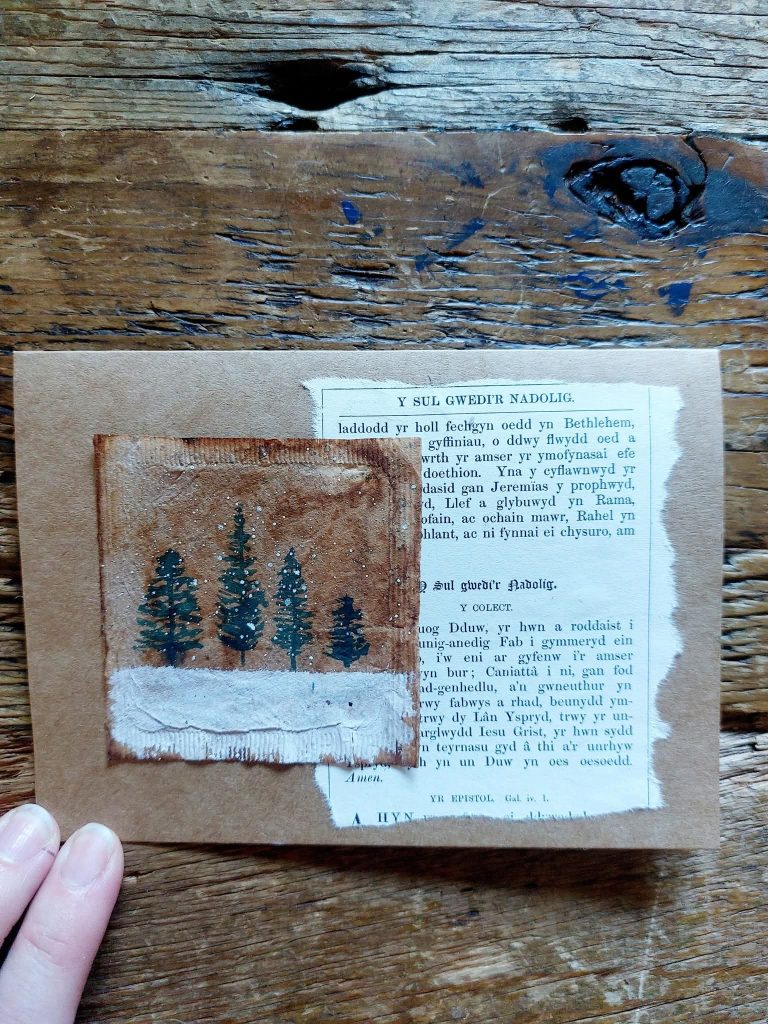 Y SUL GWEDI'R NADOLIG.
laddodd yr holl fechgyn oedd yn Bethlehem,
gyffiniau, o ddwy flwydd oed a
wrth yr amser yr ymofynasai efe
doethion. Yna y cyflawnwyd yr
dasid gan Jeremïas y prophwyd,
Llef a glybuwyd yn Rama,
ofain, ac ochain mawr, Rahel yn
hlant, ac ni fynnai ei chysuro, am
Y Sul gwedi'r Nadolig.
Y COLECT.
uog Dduw, yr hwn a roddaist i
unig-anedig Fab i gymmeryd ein
i'w eni ar gyfenw i'r amser
yn bur; Caniattâ i ni, gan fod
ad-genhedlu, a'n gwneuthur yn
rwy fabwys a rhad, beunydd ym-
trwy dy Lân Yspryd, trwy yr un-
arglwydd Iesu Grist, yr hwn sydd
yn teyrnasu gyd â thi a'r unrhyw
yn un Duw yn oes oesoedd.
Amen.
YR EPISTOL. Gal. iv. 1.
A HYN